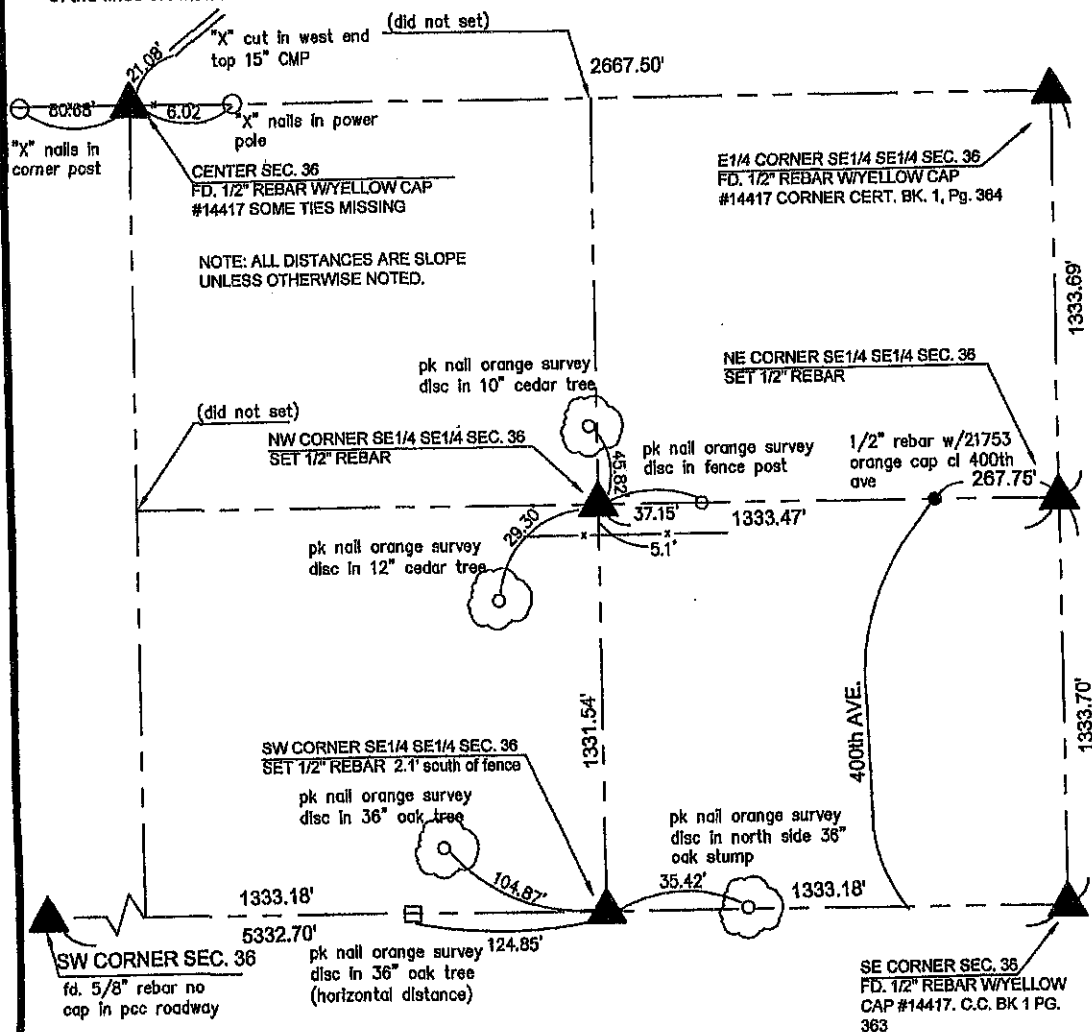 "X" cut in west end
top 15" CMP
(did not set)
21.08'
2667.50'
80.68'
6.02
"X" nails in
corner post
"X" nails in power
pole
CENTER SEC. 36
FD. 1/2" REBAR W/YELLOW CAP
#14417 SOME TIES MISSING
E1/4 CORNER SE1/4 SE1/4 SEC. 36
FD. 1/2" REBAR W/YELLOW CAP
#14417 CORNER CERT. BK. 1, Pg. 364
NOTE: ALL DISTANCES ARE SLOPE
UNLESS OTHERWISE NOTED.
1333.69'
pk nail orange survey
disc in 10" cedar tree
NE CORNER SE1/4 SE1/4 SEC. 36
SET 1/2" REBAR
(did not set)
NW CORNER SE1/4 SE1/4 SEC. 36
SET 1/2" REBAR
45.82'
pk nail orange survey
disc in fence post
1/2" rebar w/21753
orange cap cl 400th
ave
267.75'
37.15'
1333.47'
29.30'
x
x
5.1'
pk nail orange survey
disc in 12" cedar tree
1331.54'
400th AVE.
1333.70'
SW CORNER SE1/4 SE1/4 SEC. 36
SET 1/2" REBAR 2.1' south of fence
pk nail orange survey
disc in 36" oak tree
pk nail orange survey
disc in north side 36"
oak stump
104.87'
35.42'
1333.18'
1333.18'
5332.70'
124.85'
SW CORNER SEC. 36
fd. 5/8" rebar no
cap in pcc roadway
pk nail orange survey
disc in 36" oak tree
(horizontal distance)
SE CORNER SEC. 36
FD. 1/2" REBAR W/YELLOW
CAP #14417. C.C. BK 1 PG.
363